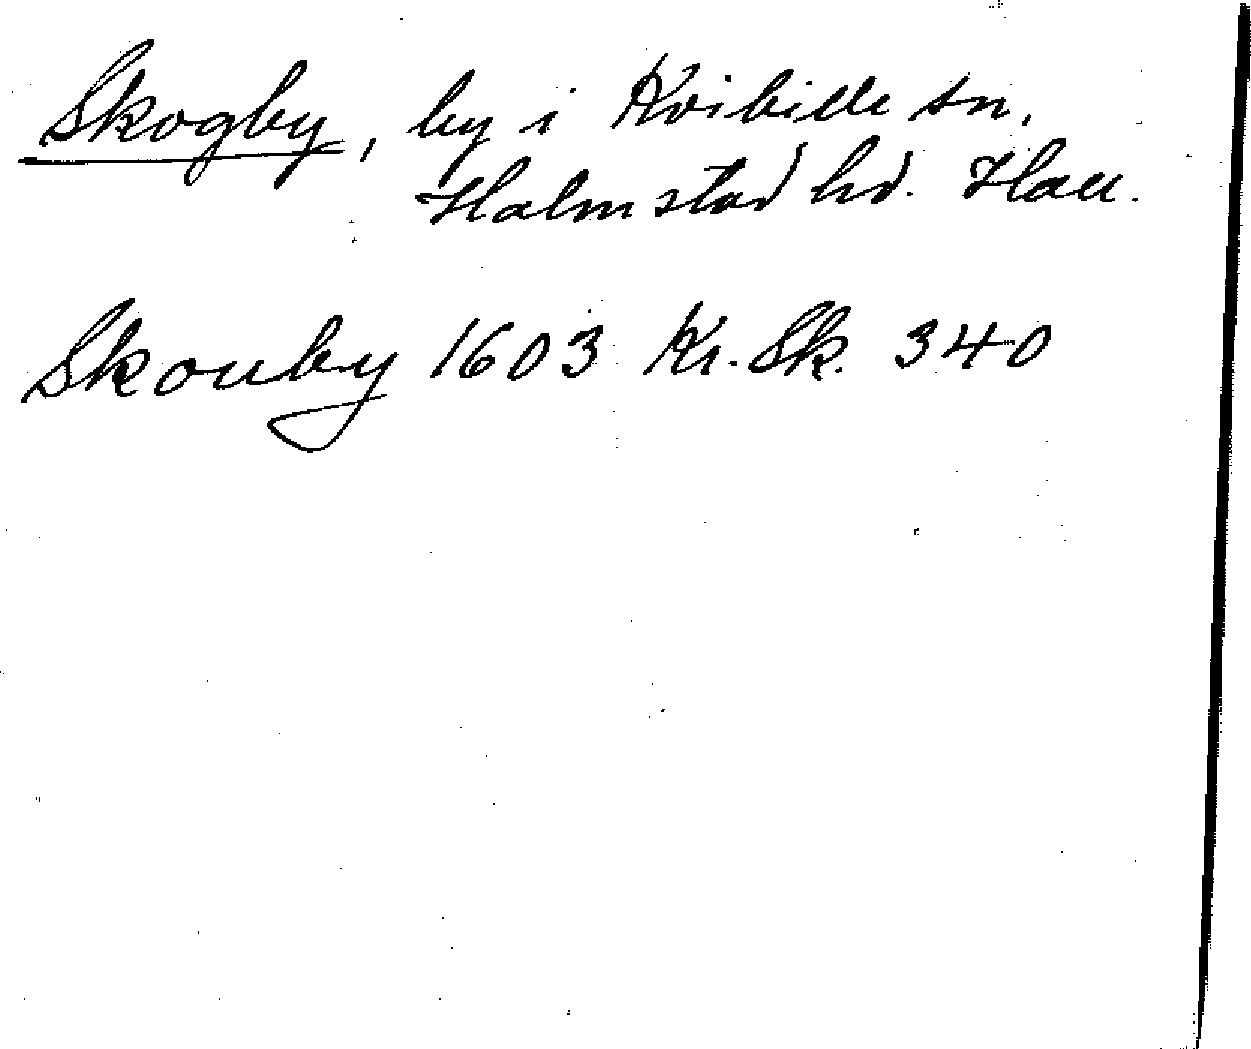 Skogby, by i Kvibille sn.
Halmstad hd. Hall.
Skouby 1603 Kr. Sk. 340